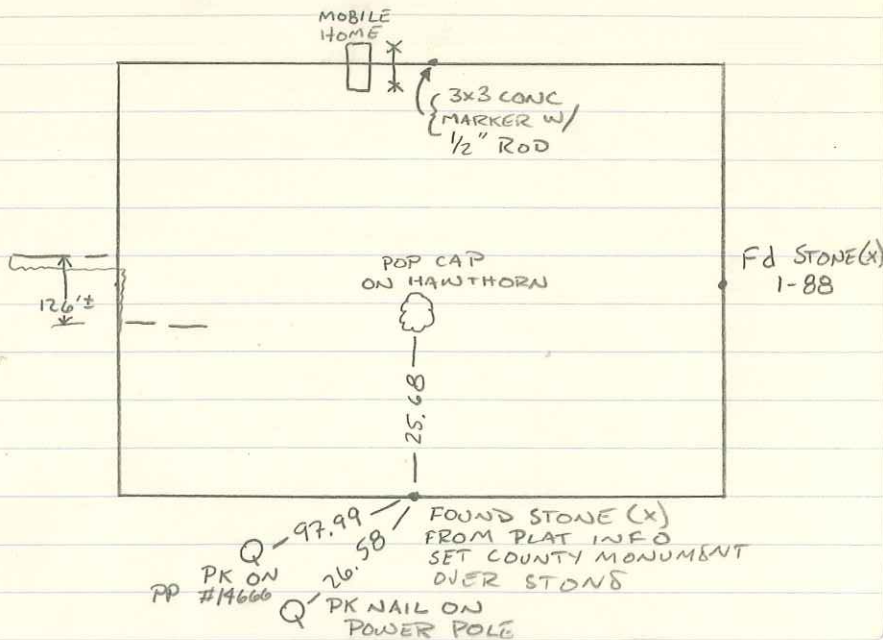 MOBILE
HOME
3x3 CONC
MARKER W/
1/2" ROD
Fd STONE(X)
1-88
POP CAP
ON HAWTHORN
126'±
25.68
97.99
26.58
FOUND STONE (X)
FROM PLAT INFO
SET COUNTY MONUMENT
OVER STONE
PK ON
PP #14666
PK NAIL ON
POWER POLE